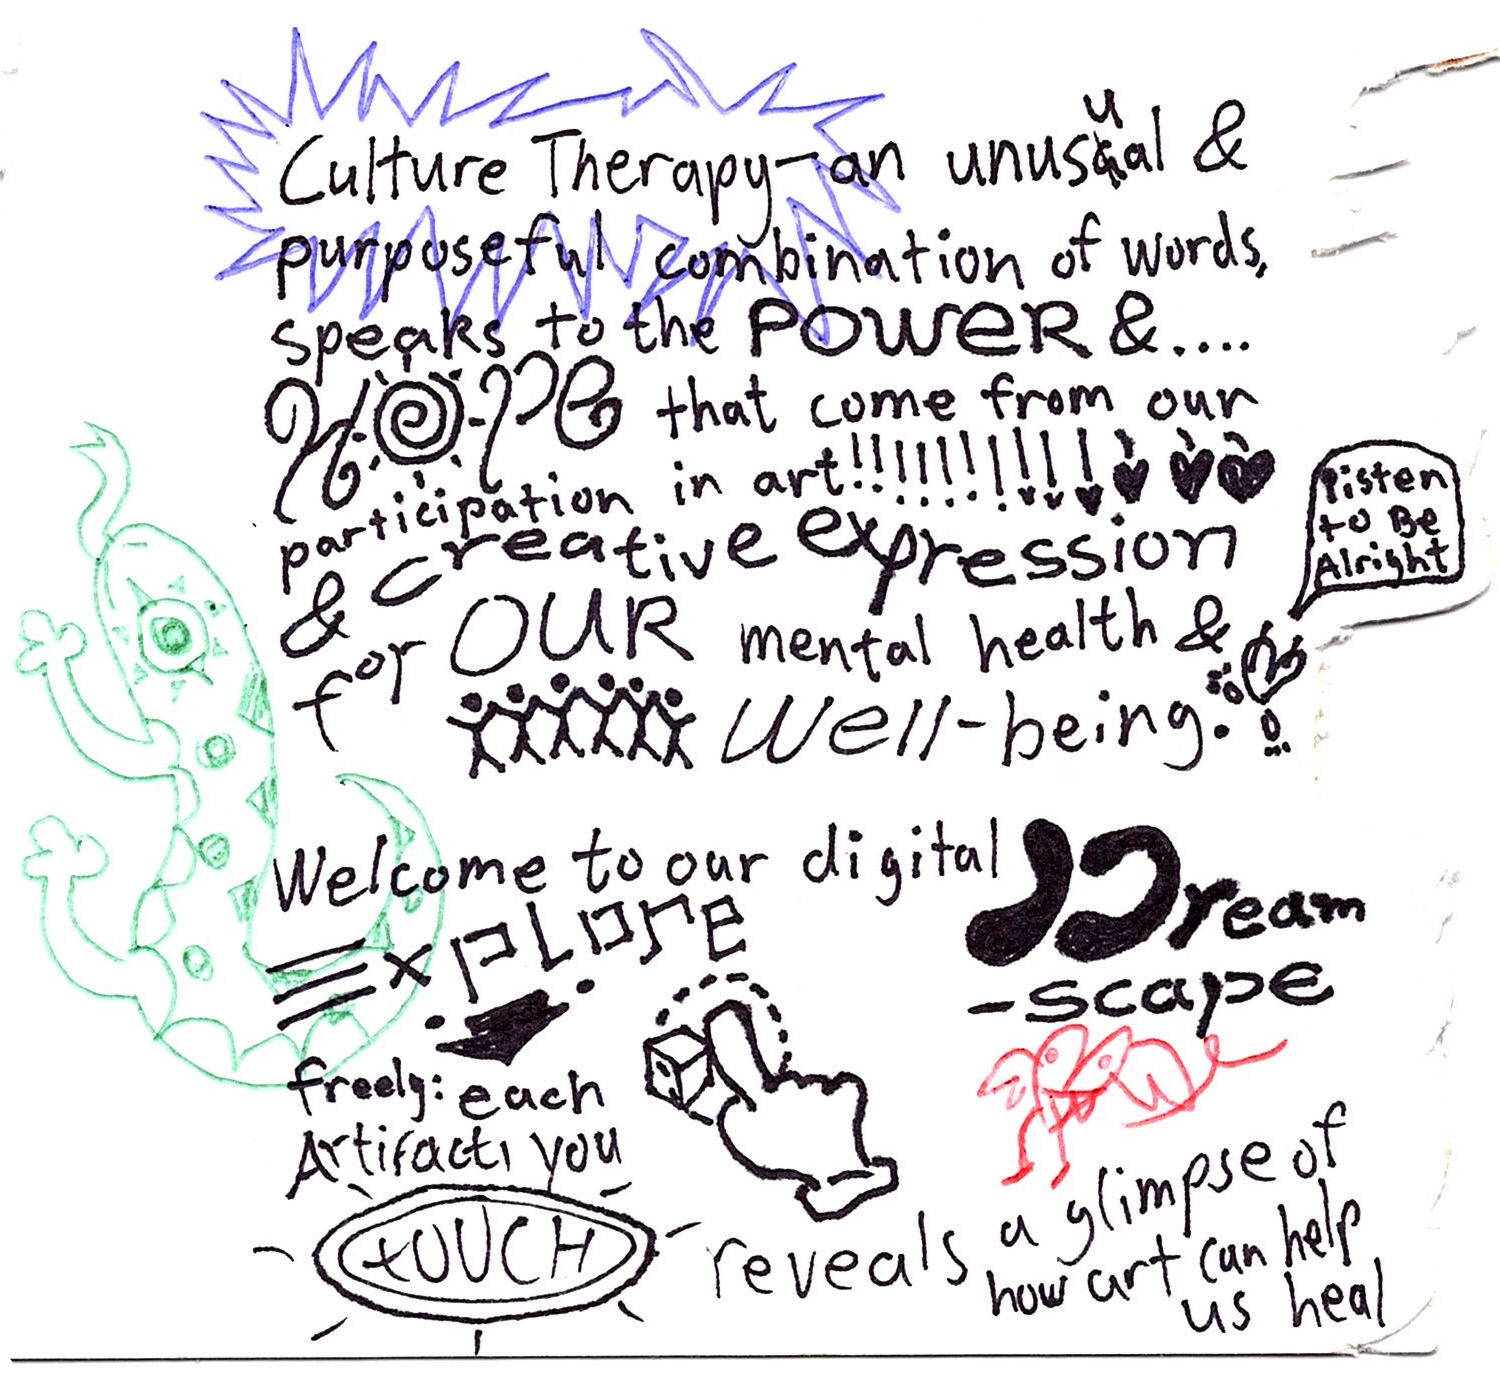 Culture Therapy - an unusual &
purposeful combination of words,
speaks to the POWER & ....
HOPE that come from our
participation in art!!!!!!!!!!!!
& creative expression
for OUR mental health &
Well-being.
Listen
to Be
Alright
Welcome to our digital Dream
-scape
Explore
freely: each
Artifact, you
toUCH reveals a glimpse of
how art can help
us heal